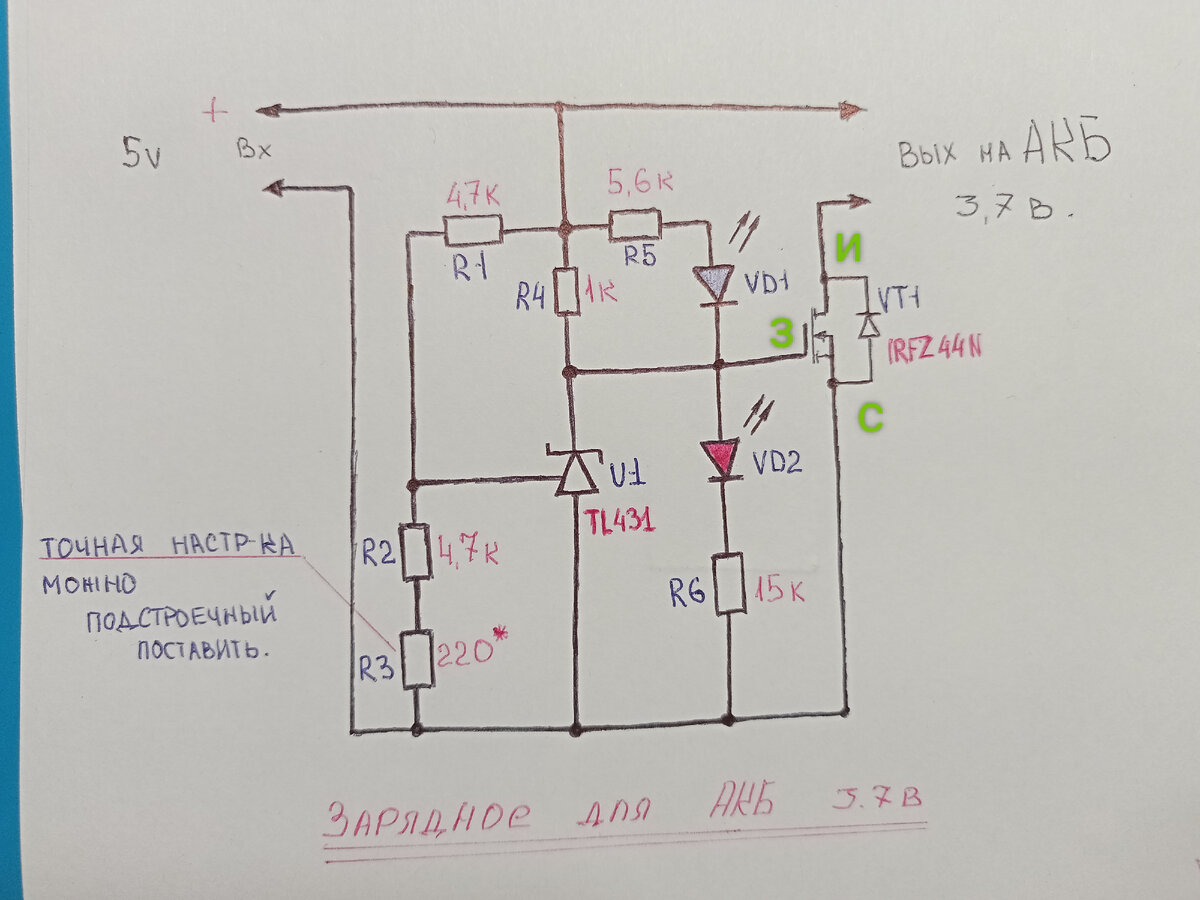 +
5v
Вх
Вых на АКБ
3,7 в.
4,7к
R1
5,6к
R5
R4
1к
VD1
И
З
VT1
IRFZ44N
С
U1
TL431
VD2
ТОЧНАЯ НАСТР-КА
МОЖНО
ПОДСТРОЕЧНЫЙ
ПОСТАВИТЬ.
R2
4,7к
R3
220*
R6
15к
ЗАРЯДНОЕ ДЛЯ АКБ 3.7В